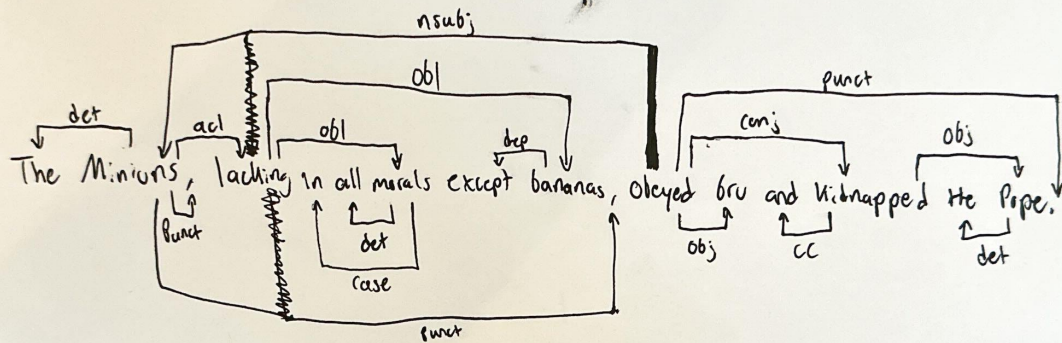 nsubj
obl
punct
det
acl
obl
dep
conj
obj
The Minions, lacking in all morals except bananas, obeyed Gru and kidnapped the Pope.
Punct
det
obj
cc
det
case
punct